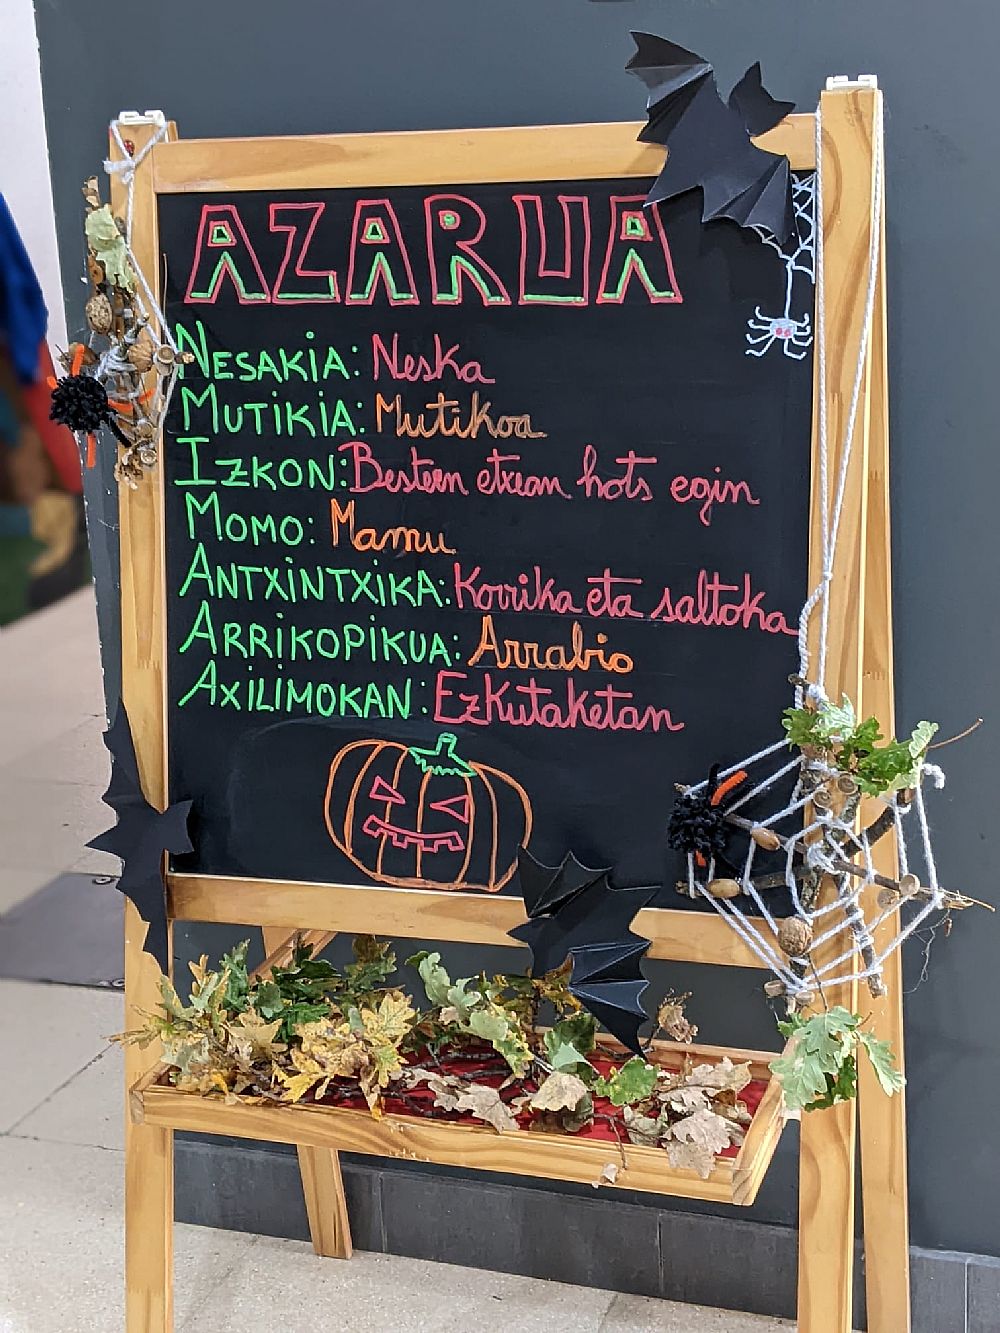 AZARUA
NESAKIA: Neska
MUTIKIA: Mutikoa
IZKON: Besteen etxean hots egin
MOMO: Mamu
ANTXINTXIKA: Korrika eta saltoka
ARRIKOPIKUA: Arrabio
AXILIMOKAN: Ezkutaketan